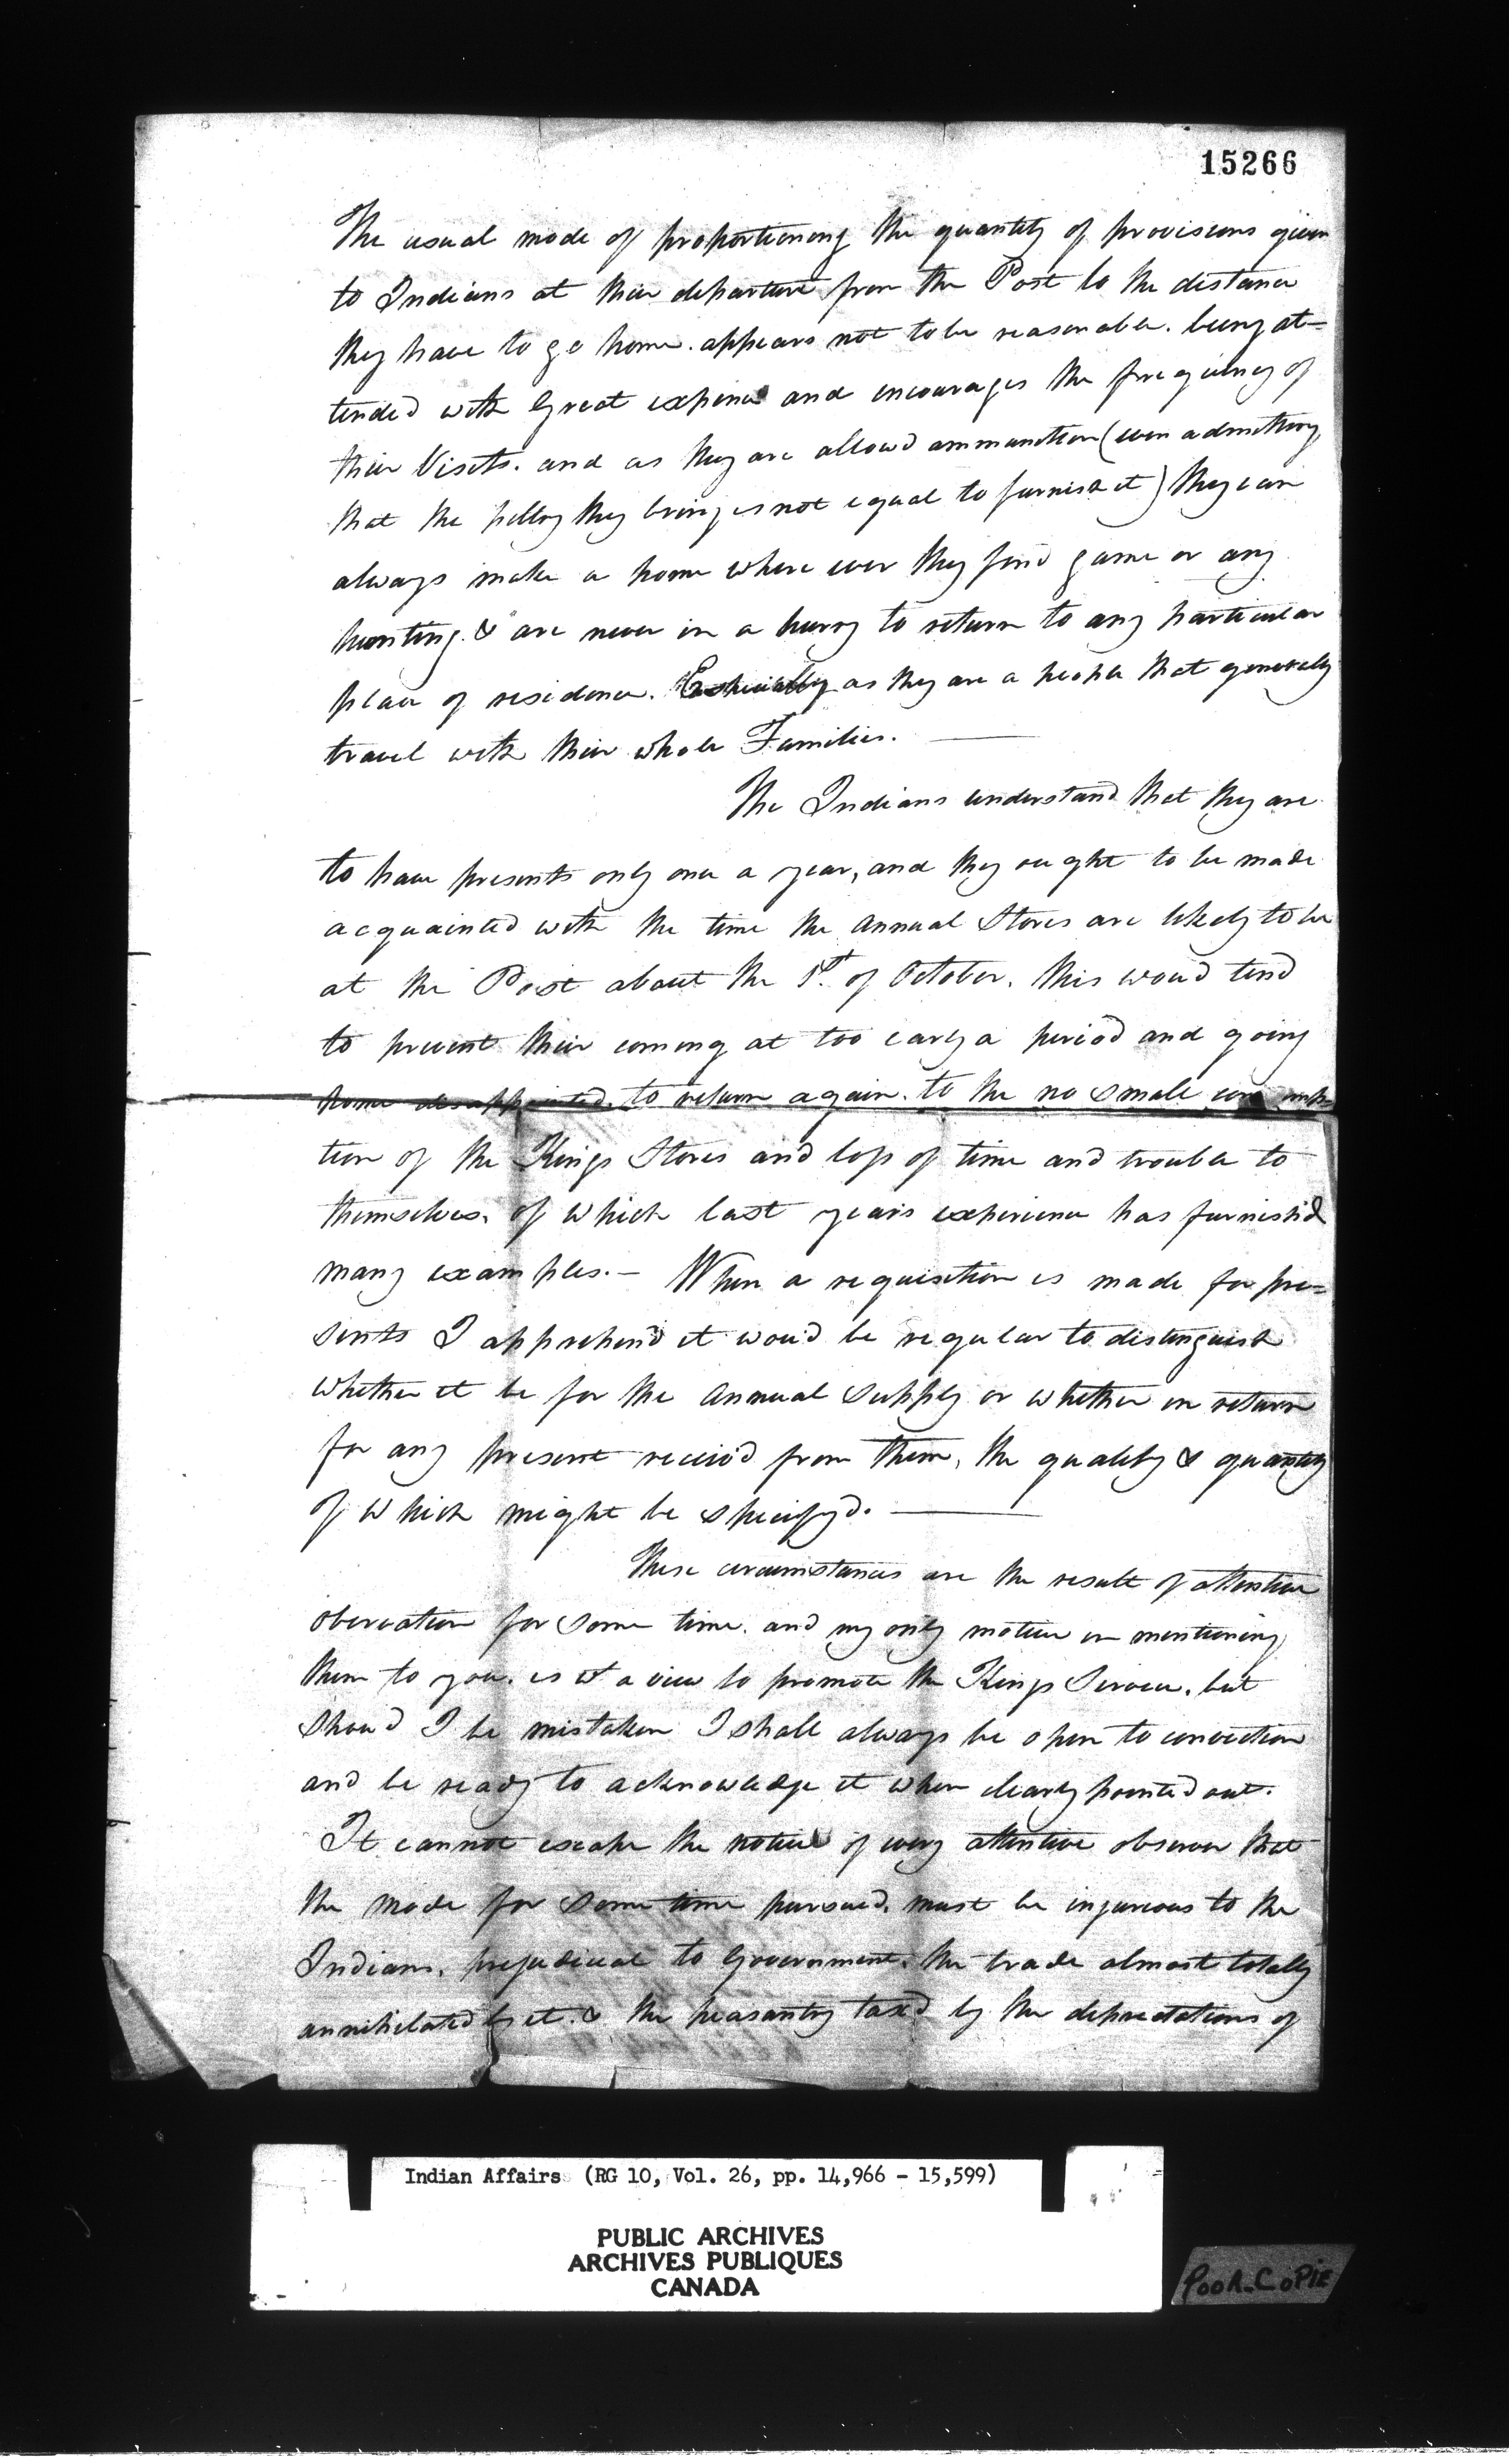 15266
The usual mode of proportioning the quantity of provisions given
to Indians at their departure from the Post to the distance
they have to go home. appears not to be reasonable. being at=
tended with Great expence and encourages the frequency of
their Visits. and as they are allow'd ammunition (even admitting
that the peltry they bring is not equal to furnish it) they can
always make a home where ever they find game or any
hunting. & are never in a hurry to return to any particular
place of residence. Especially as they are a people that generally
travel with their whole Families.
The Indians understand that they are
to have presents only once a year, and they ought to be made
acquainted with the time the annual Stores are likely to be
at the Post about the 1st. of October. this wou'd tend
to prevent their coming at too early a period and going
home disappointed. to return again. to the no small consump=
tion of the Kings Stores and loss of time and trouble to
themselves. of which last years experience has furnish'd
many examples.— When a requisition is made for pre=
sents I apprehend it wou'd be regular to distinguish
whether it be for the annual supply or whether in return
for any present receiv'd from them, the quality & quantity
of which might be specify'd.
These circumstances are the result of attentive
obervation for some time. and my only motive in mentioning
them to you. is wt a view to promote the Kings Service. but
shou'd I be mistaken I shall always be open to conviction
and be ready to acknowledge it when clearly pointed out.
It cannot escape the notice of every attentive observer that
the mode for some time pursued. must be injurious to the
Indians. prejudicial to Government. the trade almost totally
annihilated by it. & the peasantry tax'd by the depredations of
Indian Affairs (RG 10, Vol. 26, pp. 14,966 - 15,599)
PUBLIC ARCHIVES
ARCHIVES PUBLIQUES
CANADA
POOR COPIE